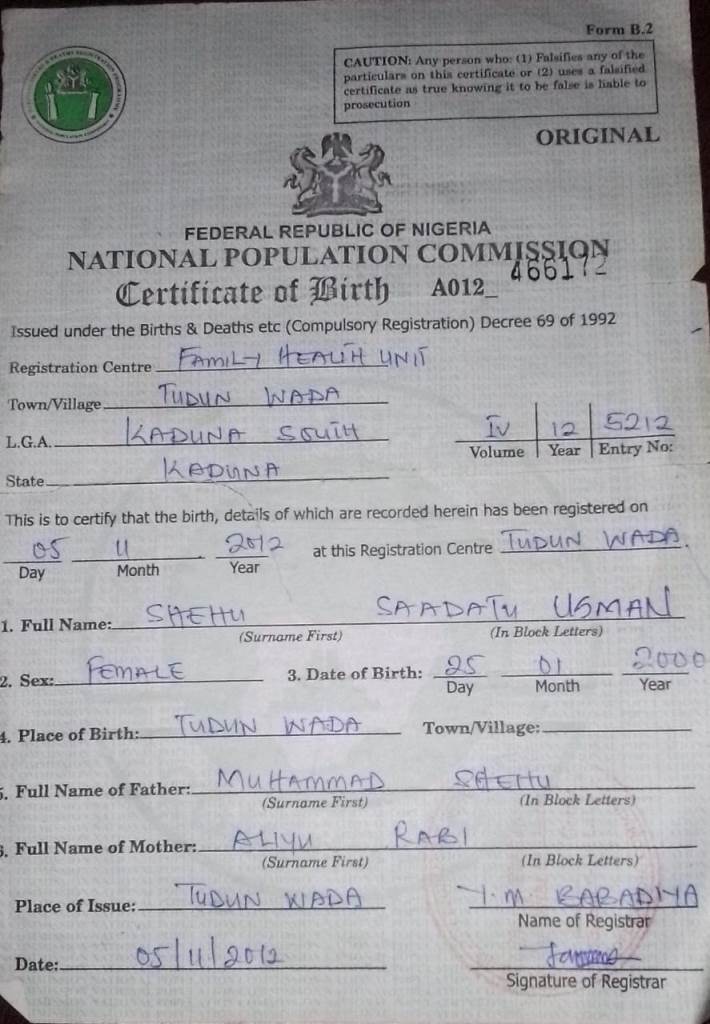 Form B.2
CAUTION: Any person who: (1) Falsifies any of the
particulars on this certificate or (2) uses a falsified
certificate as true knowing it to be false is liable to
prosecution
ORIGINAL
FEDERAL REPUBLIC OF NIGERIA
NATIONAL POPULATION COMMISSION
Certificate of Birth A012_ 466172
Issued under the Births & Deaths etc (Compulsory Registration) Decree 69 of 1992
Registration Centre FAMILY HEALTH UNIT
Town/Village TUDUN WADA
L.G.A. KADUNA SOUTH
IV 12 5212
Volume Year Entry No:
State KADUNA
This is to certify that the birth, details of which are recorded herein has been registered on
05 11 2012 at this Registration Centre TUDUN WADA.
Day Month Year
1. Full Name: SHEHU SAADATU USMAN
(Surname First) (In Block Letters)
2. Sex: FEMALE 3. Date of Birth: 25 01 2000
Day Month Year
4. Place of Birth: TUDUN WADA Town/Village:
5. Full Name of Father: MUHAMMAD SHEHU
(Surname First) (In Block Letters)
6. Full Name of Mother: ALIYU RABI
(Surname First) (In Block Letters)
Place of Issue: TUDUN WADA Y.M BABADIYA
Name of Registrar
Date: 05/11/2012
Signature of Registrar